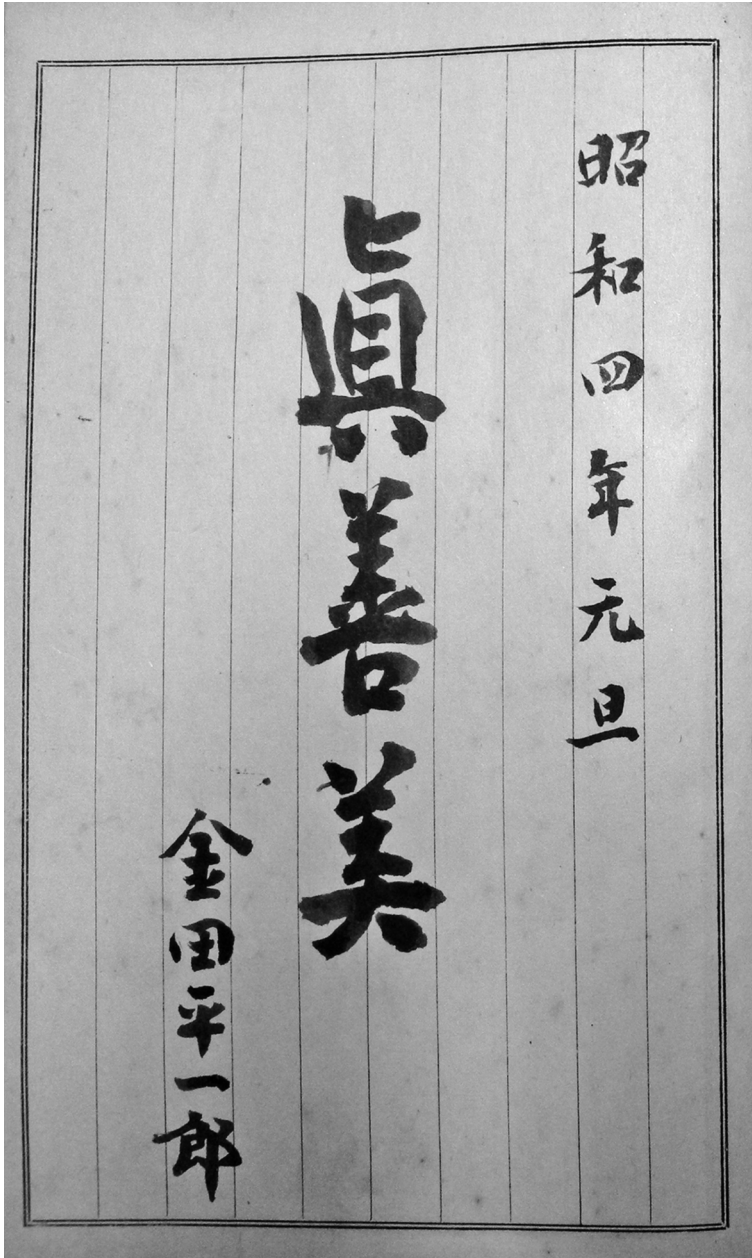 昭和四年元旦
眞善美
金田平一郎